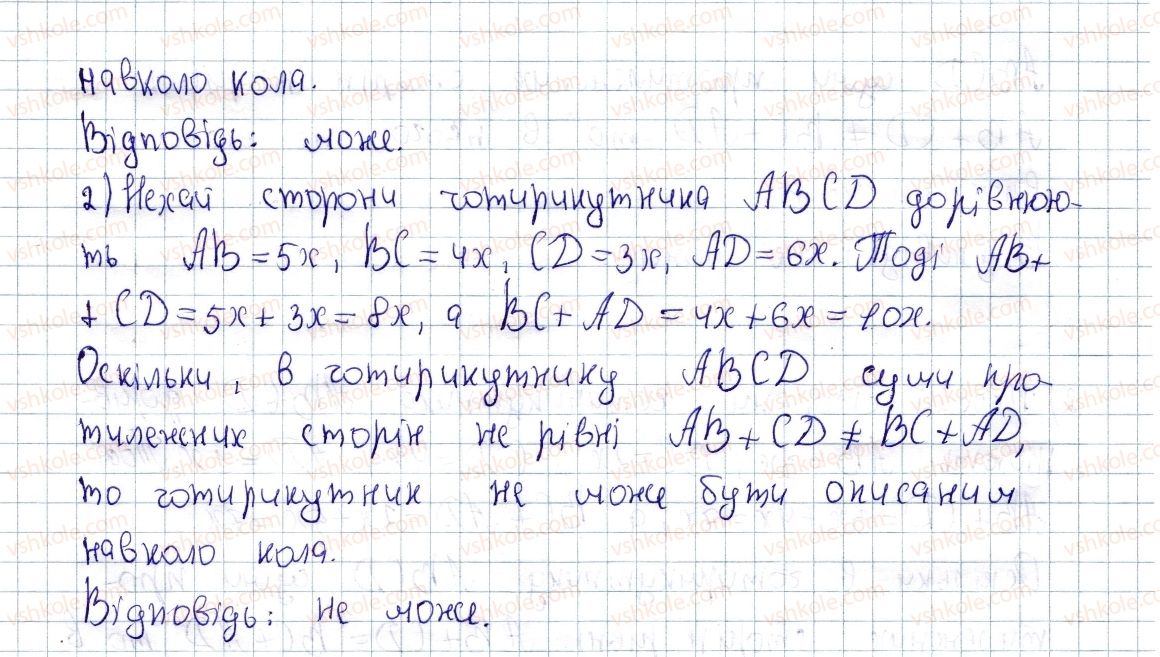 навколо кола.
Відповідь: може.
2) Нехай сторони чотирикутника ABCD дорівнюю-
ть AB = 5x, BC = 4x, CD = 3x, AD = 6x. Тоді AB+
+ CD = 5x + 3x = 8x, а BC + AD = 4x + 6x = 10x.
Оскільки, в чотирикутнику ABCD суми про-
тилежних сторін не рівні AB + CD ≠ BC + AD,
то чотирикутник не може бути описаним
навколо кола.
Відповідь: не може.